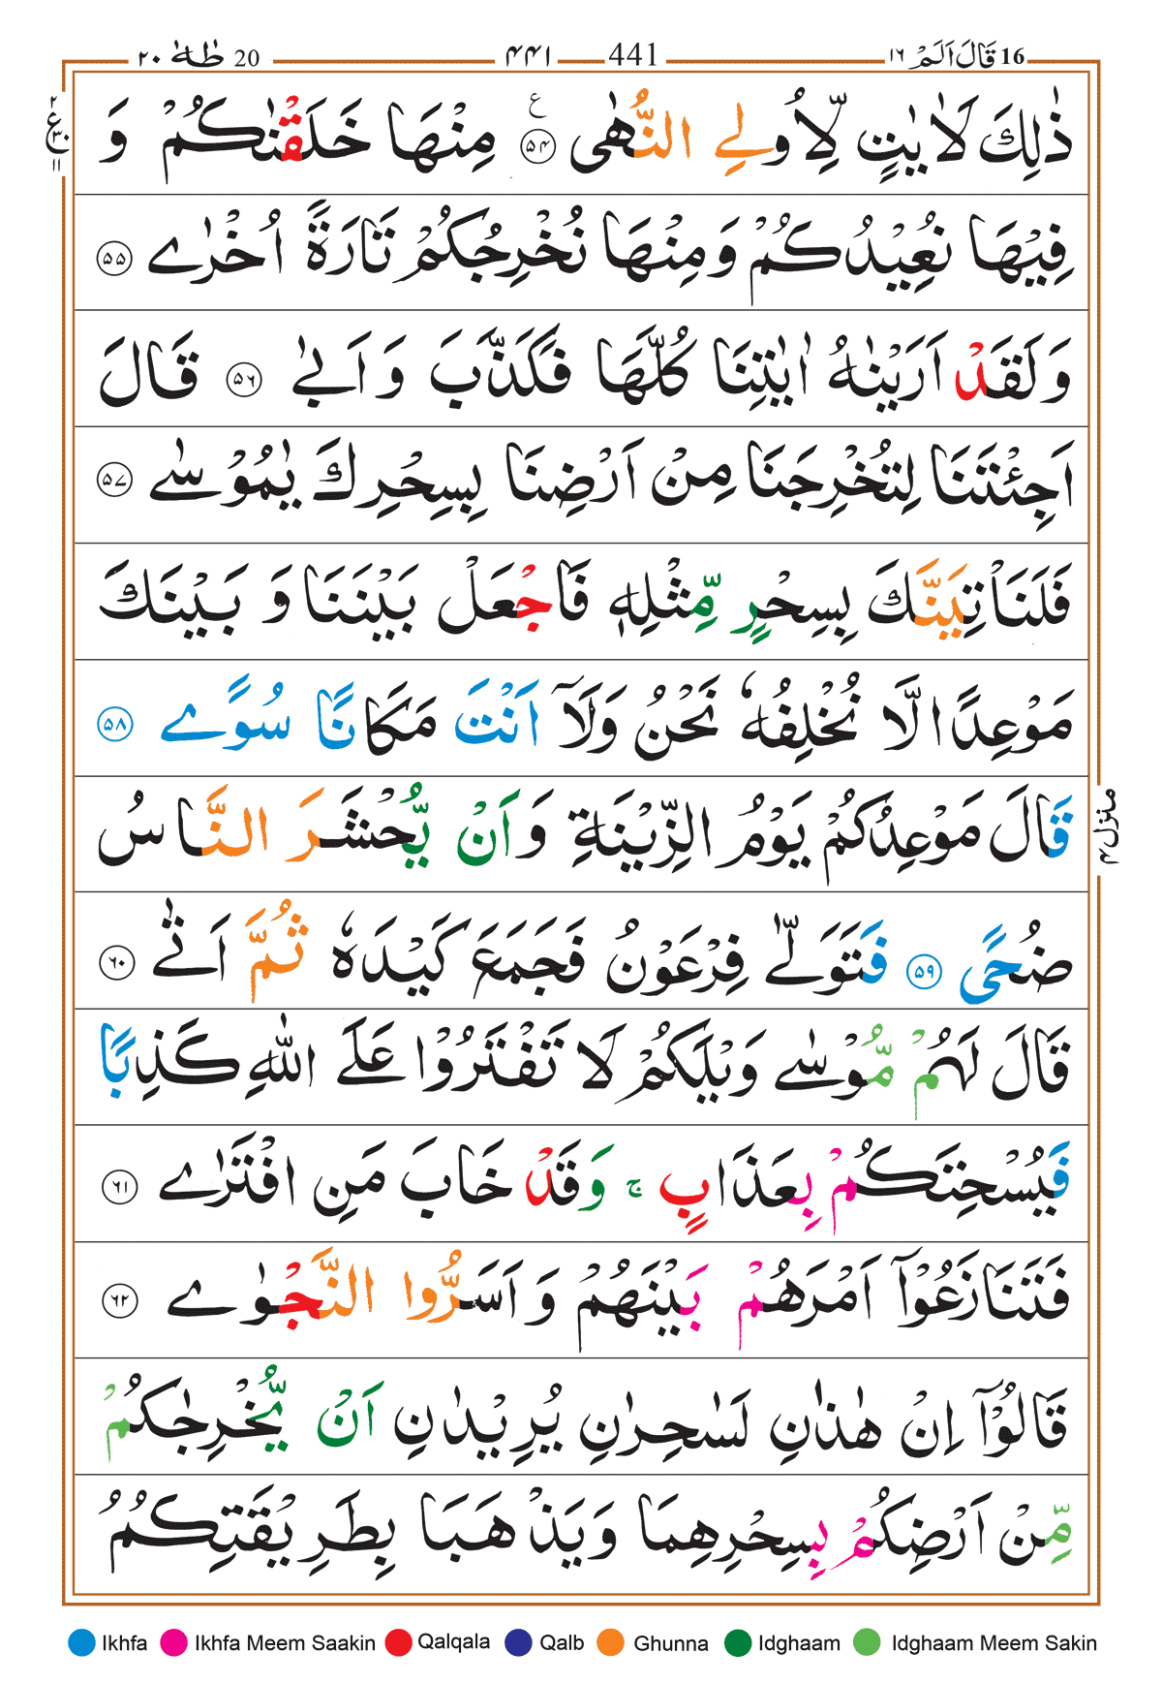 20 طٰهٰ ۲۰
441 ۴۴۱
16 قَالَ اَلَمْ ۱۶
ذٰلِكَ لَاٰيٰتٍ لِّاُولِي النُّهٰى ۵۴ ع مِنْهَا خَلَقْنٰكُمْ وَ
ع ۲ ۳۰ ۱۱
فِيْهَا نُعِيْدُكُمْ وَمِنْهَا نُخْرِجُكُمْ تَارَةً اُخْرٰى ۵۵
وَلَقَدْ اَرَيْنٰهُ اٰيٰتِنَا كُلَّهَا فَكَذَّبَ وَ اَبٰى ۵۶ قَالَ
اَجِئْتَنَا لِتُخْرِجَنَا مِنْ اَرْضِنَا بِسِحْرِكَ يٰمُوْسٰى ۵۷
فَلَنَاْتِيَنَّكَ بِسِحْرٍ مِّثْلِهٖ فَاجْعَلْ بَيْنَنَا وَ بَيْنَكَ
مَوْعِدًا لَّا نُخْلِفُهٗ نَحْنُ وَلَآ اَنْتَ مَكَانًا سُوًى ۵۸
قَالَ مَوْعِدُكُمْ يَوْمُ الزِّيْنَةِ وَاَنْ يُّحْشَرَ النَّاسُ
منزل ۴
ضُحًى ۵۹ فَتَوَلّٰى فِرْعَوْنُ فَجَمَعَ كَيْدَهٗ ثُمَّ اَتٰى ۶۰
قَالَ لَهُمْ مُّوْسٰى وَيْلَكُمْ لَا تَفْتَرُوْا عَلَى اللّٰهِ كَذِبًا
فَيُسْحِتَكُمْ بِعَذَابٍ ۚ وَقَدْ خَابَ مَنِ افْتَرٰى ۶۱
فَتَنَازَعُوْٓا اَمْرَهُمْ بَيْنَهُمْ وَ اَسَرُّوا النَّجْوٰى ۶۲
قَالُوْٓا اِنْ هٰذٰنِ لَسٰحِرٰنِ يُرِيْدٰنِ اَنْ يُّخْرِجٰكُمْ
مِّنْ اَرْضِكُمْ بِسِحْرِهِمَا وَيَذْهَبَا بِطَرِيْقَتِكُمُ
Ikhfa Ikhfa Meem Saakin Qalqala Qalb Ghunna Idghaam Idghaam Meem Sakin